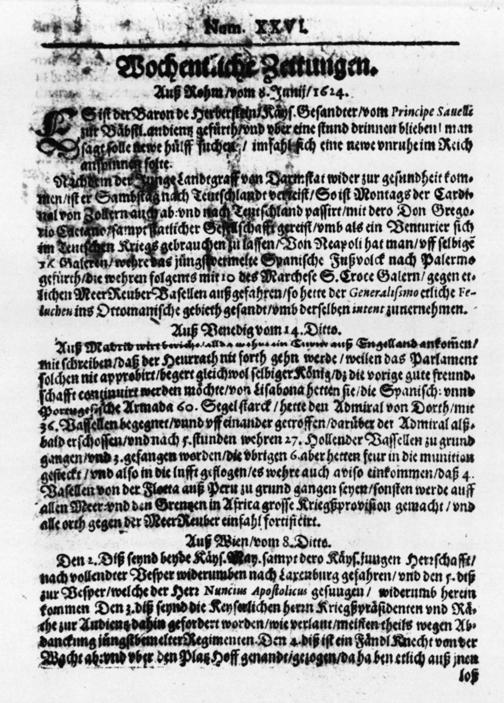 Num. XXVI.
Wochentliche Zeitungen.
Auß Rohm/vom 8. Junij/1624.
ES ist der Baron de Herberstein/Käys. Gesandter/vom Principe Savelli
zur Bäbstl. audientz geführt/vnd vber eine stund drinnen blieben/man
sagt solle newe hülff suchen/ imfahl sich eine newe vnruhe im Reich
anspinnen solte.
Nachdem der Junge Landtgraff von Darmstat wider zur gesundheit kom-
men/ist er Sambstag nach Teutschlandt verreist/So ist Montags der Cardi-
nal von Zollern auch ab: vnd nach Teutschland passirt/mit dero Don Grego-
rio Caetano/sampt stattlicher Gesellschafft gereist/vmb als ein Venturier sich
im Teutschen Kriegs gebrauchen zu lassen/Von Neapoli hat man/vff selbige
Galeren/wehre das jüngst vermelte Spanische Fußvolck nach Palermo
geführt/die wehren folgents mit 10 des Marchese S. Croce Galern/gegen et-
lichen MeerReuber Vasellen auß gefahren/so hette der Generalissimo etliche Fe-
luchen ins Ottomanische gebieth gesandt/vmb derselben intent zuvernehmen.
Auß Venedig vom 14. Ditto.
Auß Madrid wirt bericht/ auß Engelland ankomen/
mit schreiben/daß der Heurrath nit forth gehn werde/weilen das Parlament
solchen nit approbirt/begert gleichwol selbiger König/dz die vorige gute freund-
schafft continuirt werden möchte/von Lisabona hetten sie/die Spanisch: vnnd
Portugesische Armada 60. Segel starck/hette den Admiral von Dorth/mit
36. Vassellen begegnet/vnnd vff einander getroffen/darüber der Admiral alß-
bald erschossen/vnd nach 5. stunden wehren 27. Hollender Vassellen zu grund
gangen/vnd 3. gefangen worden/die vbrigen 6. aber hetten feur in die munition
gesteckt/vnd also in die lufft geflogen/es wehre auch aviso einkommen/daß 4.
Vasellen von der Flotta auß Peru zu grund gangen seyen/sonsten werde auff
allen Meer: vnd den Grentzen in Africa grosse Kriegßprovision gemacht/vnd
alle orth gegen der MeerReuber einfahl fortificirt.
Auß Wien/vom 8. Ditto.
Den 2. Diß seynd beyde Käys. May. sampt dero Käys. jungen Herrschafft/
nach vollendter Vesper widerumben nach Laxenburg gefahren/vnd den 5. diß
zur Vesper/welche der Herr Nuncius Apostolicus gesungen/ widerumb herein
kommen Den 3. diß seynd die Keyserlichen herrn Kriegßpräsidenten vnd Rä-
the zur Audientz dahin gefordert worden/wie verlaut/meisten theils wegen Ab-
danckung jüngstbemelter Regimenten. Den 4. diß ist ein Fändl Knecht von der
Wacht ab: vnd vber den Platz Hoff genandt/gezogen/da haben etlich auß jnen
loß